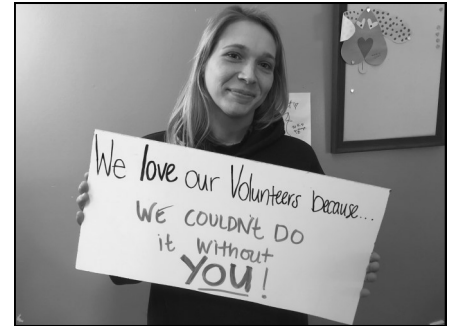 We love our Volunteers because...
WE COULDN'T DO
it without
YOU!